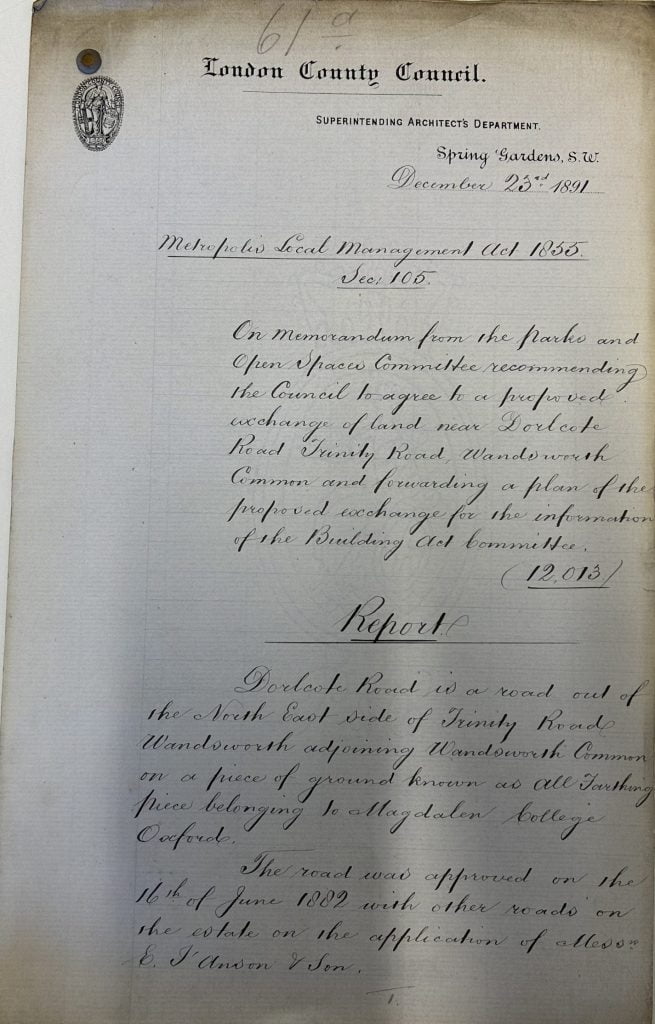 61a
London County Council.
Superintending Architect's Department.
Spring Gardens, S.W.
December 23rd 1891
Metropolis Local Management Act 1855.
Sec: 105.
On memorandum from the Parks and
Open Spaces Committee recommending
the Council to agree to a proposed
exchange of land near Dorlcote
Road Trinity Road, Wandsworth
Common and forwarding a plan of the
proposed exchange for the information
of the Building Act Committee.
(12,013)
Report
Dorlcote Road is a road out of
the North East side of Trinity Road
Wandsworth adjoining Wandsworth Common
on a piece of ground known as All Farthing
piece belonging to Magdalen College
Oxford.
The road was approved on the
16th of June 1882 with other roads on
the estate on the application of Messrs
E. I'Anson & Son.
1.